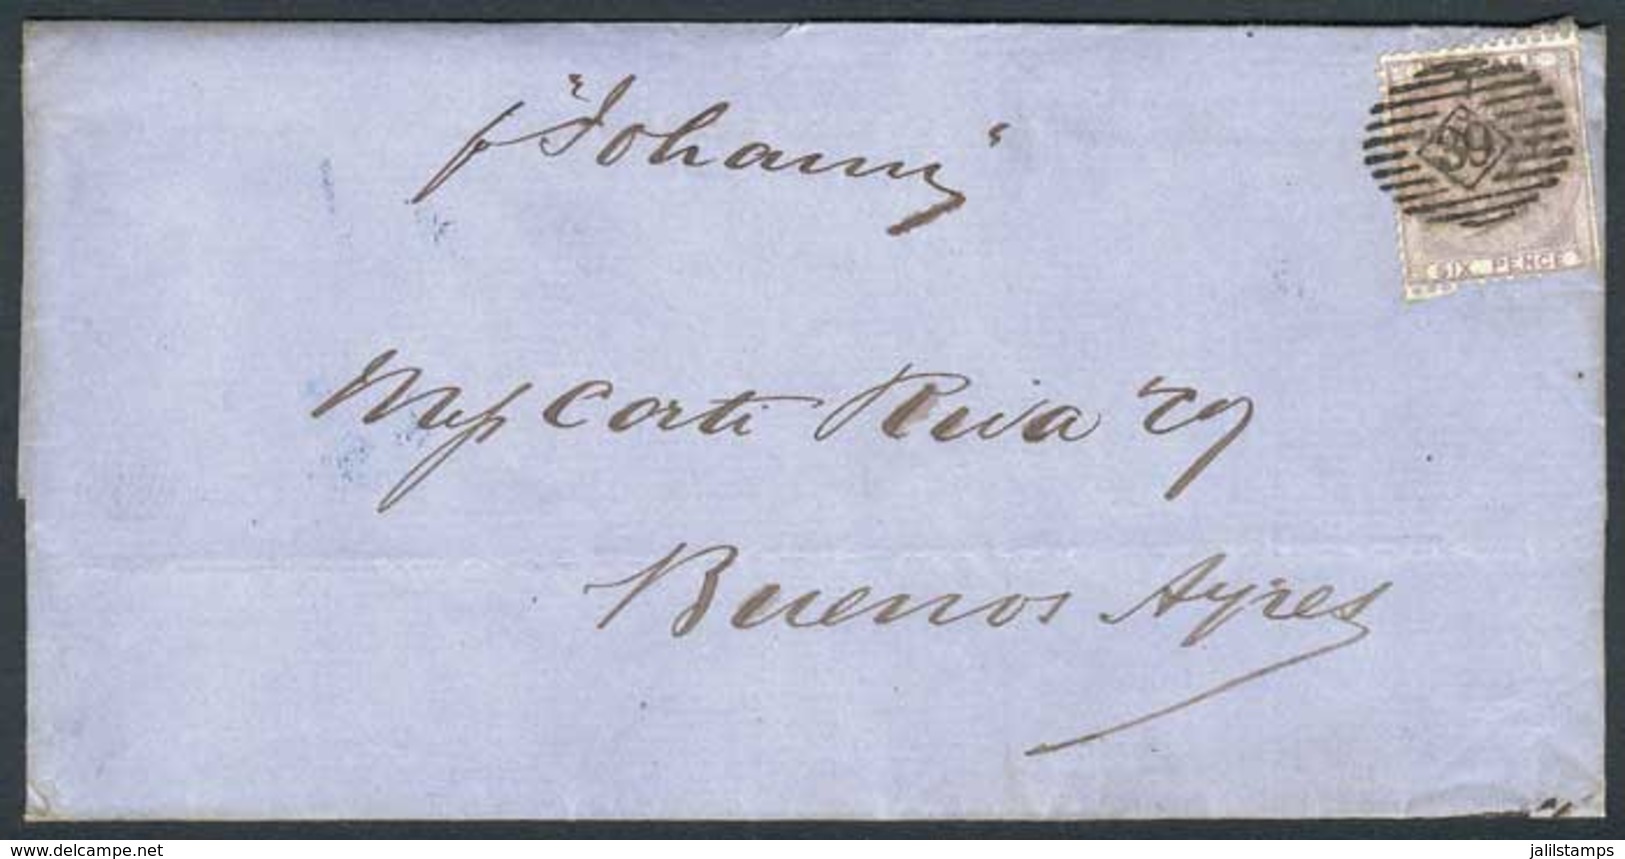 p "Johann"
39
SIX PENCE
Mess Corti Riva &Cy
Buenos Ayres
www.delcampe.net
jalilstamps